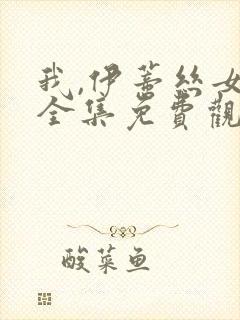 我,伊蕾丝女
全集免費觀
酸菜鱼